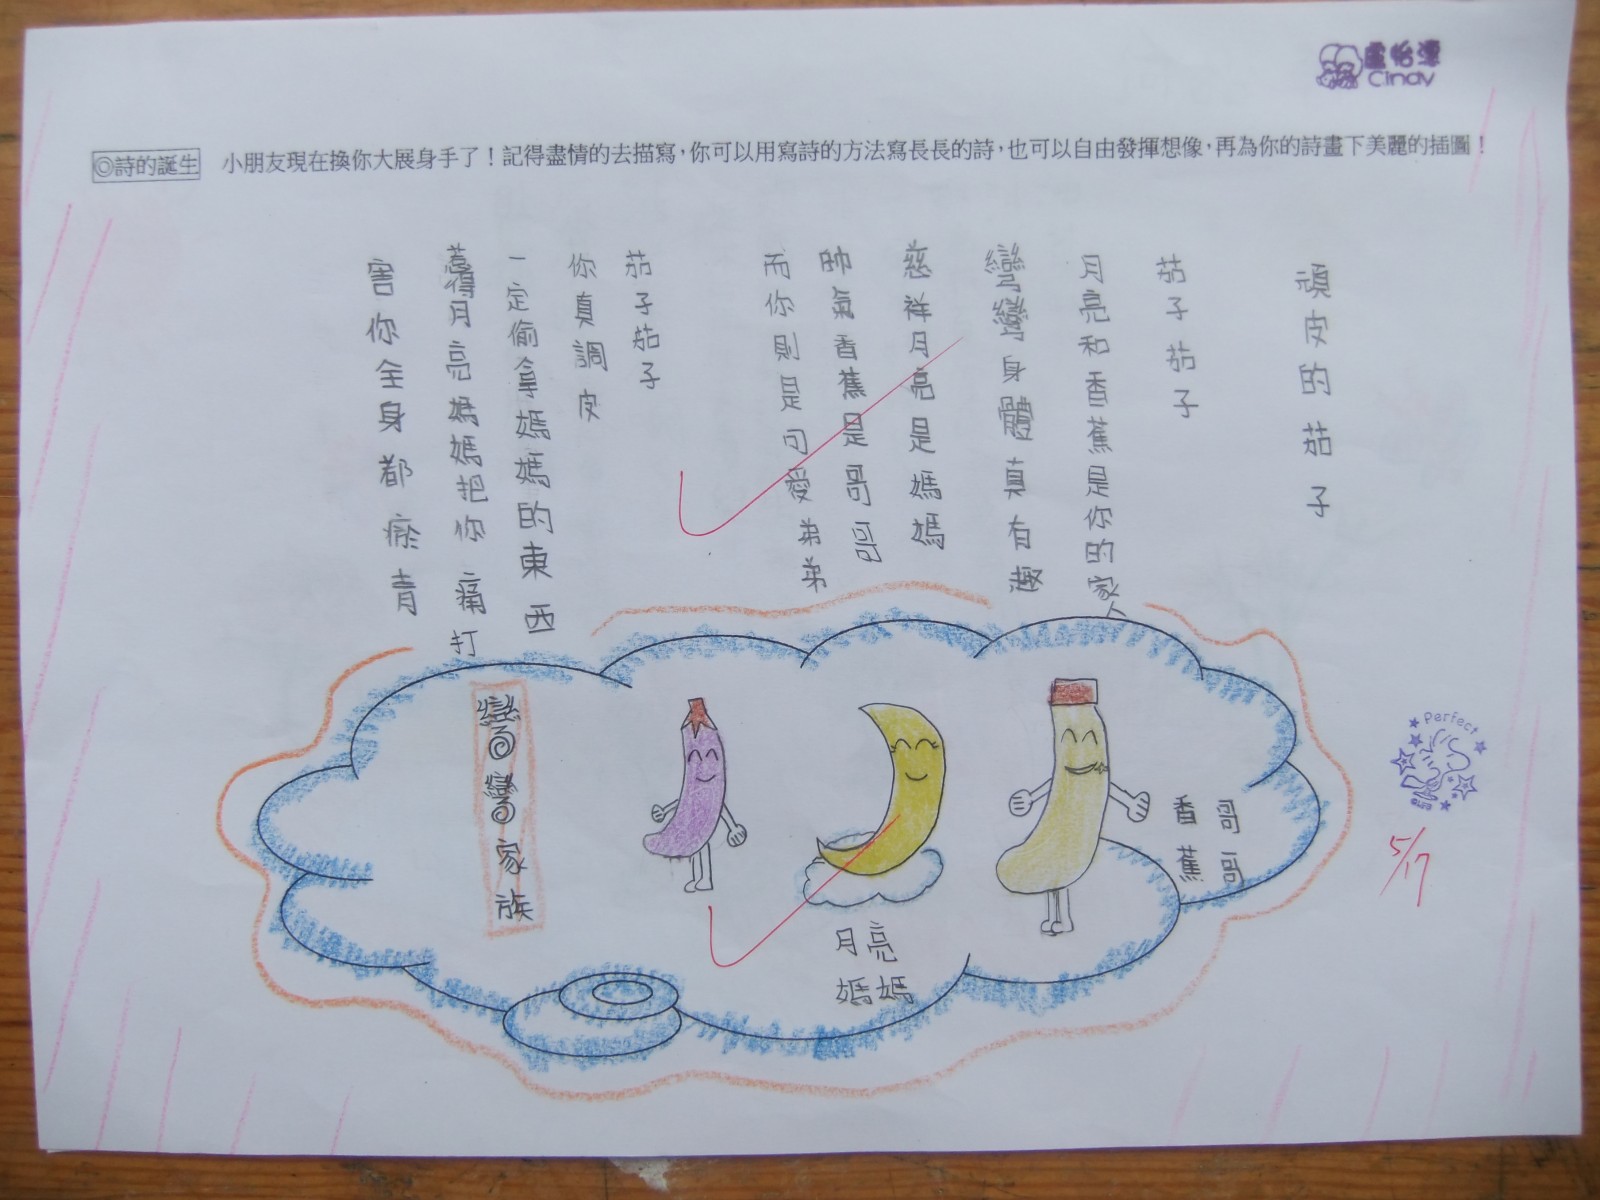 盧怡潓
Cindy
◎詩的誕生
小朋友現在換你大展身手了！記得盡情的去描寫，你可以用寫詩的方法寫長長的詩，也可以自由發揮想像，再為你的詩畫下美麗的插圖！
頑皮的茄子
茄子茄子
月亮和香蕉是你的家人
彎彎身體真有趣
慈祥月亮是媽媽
帥氣香蕉是哥哥
而你則是可愛弟弟
茄子茄子
你真調皮
一定偷拿媽媽的東西
惹得月亮媽媽把你痛打
害你全身都瘀青
彎彎家族
月亮
媽媽
哥哥
香蕉
Perfect
5/17